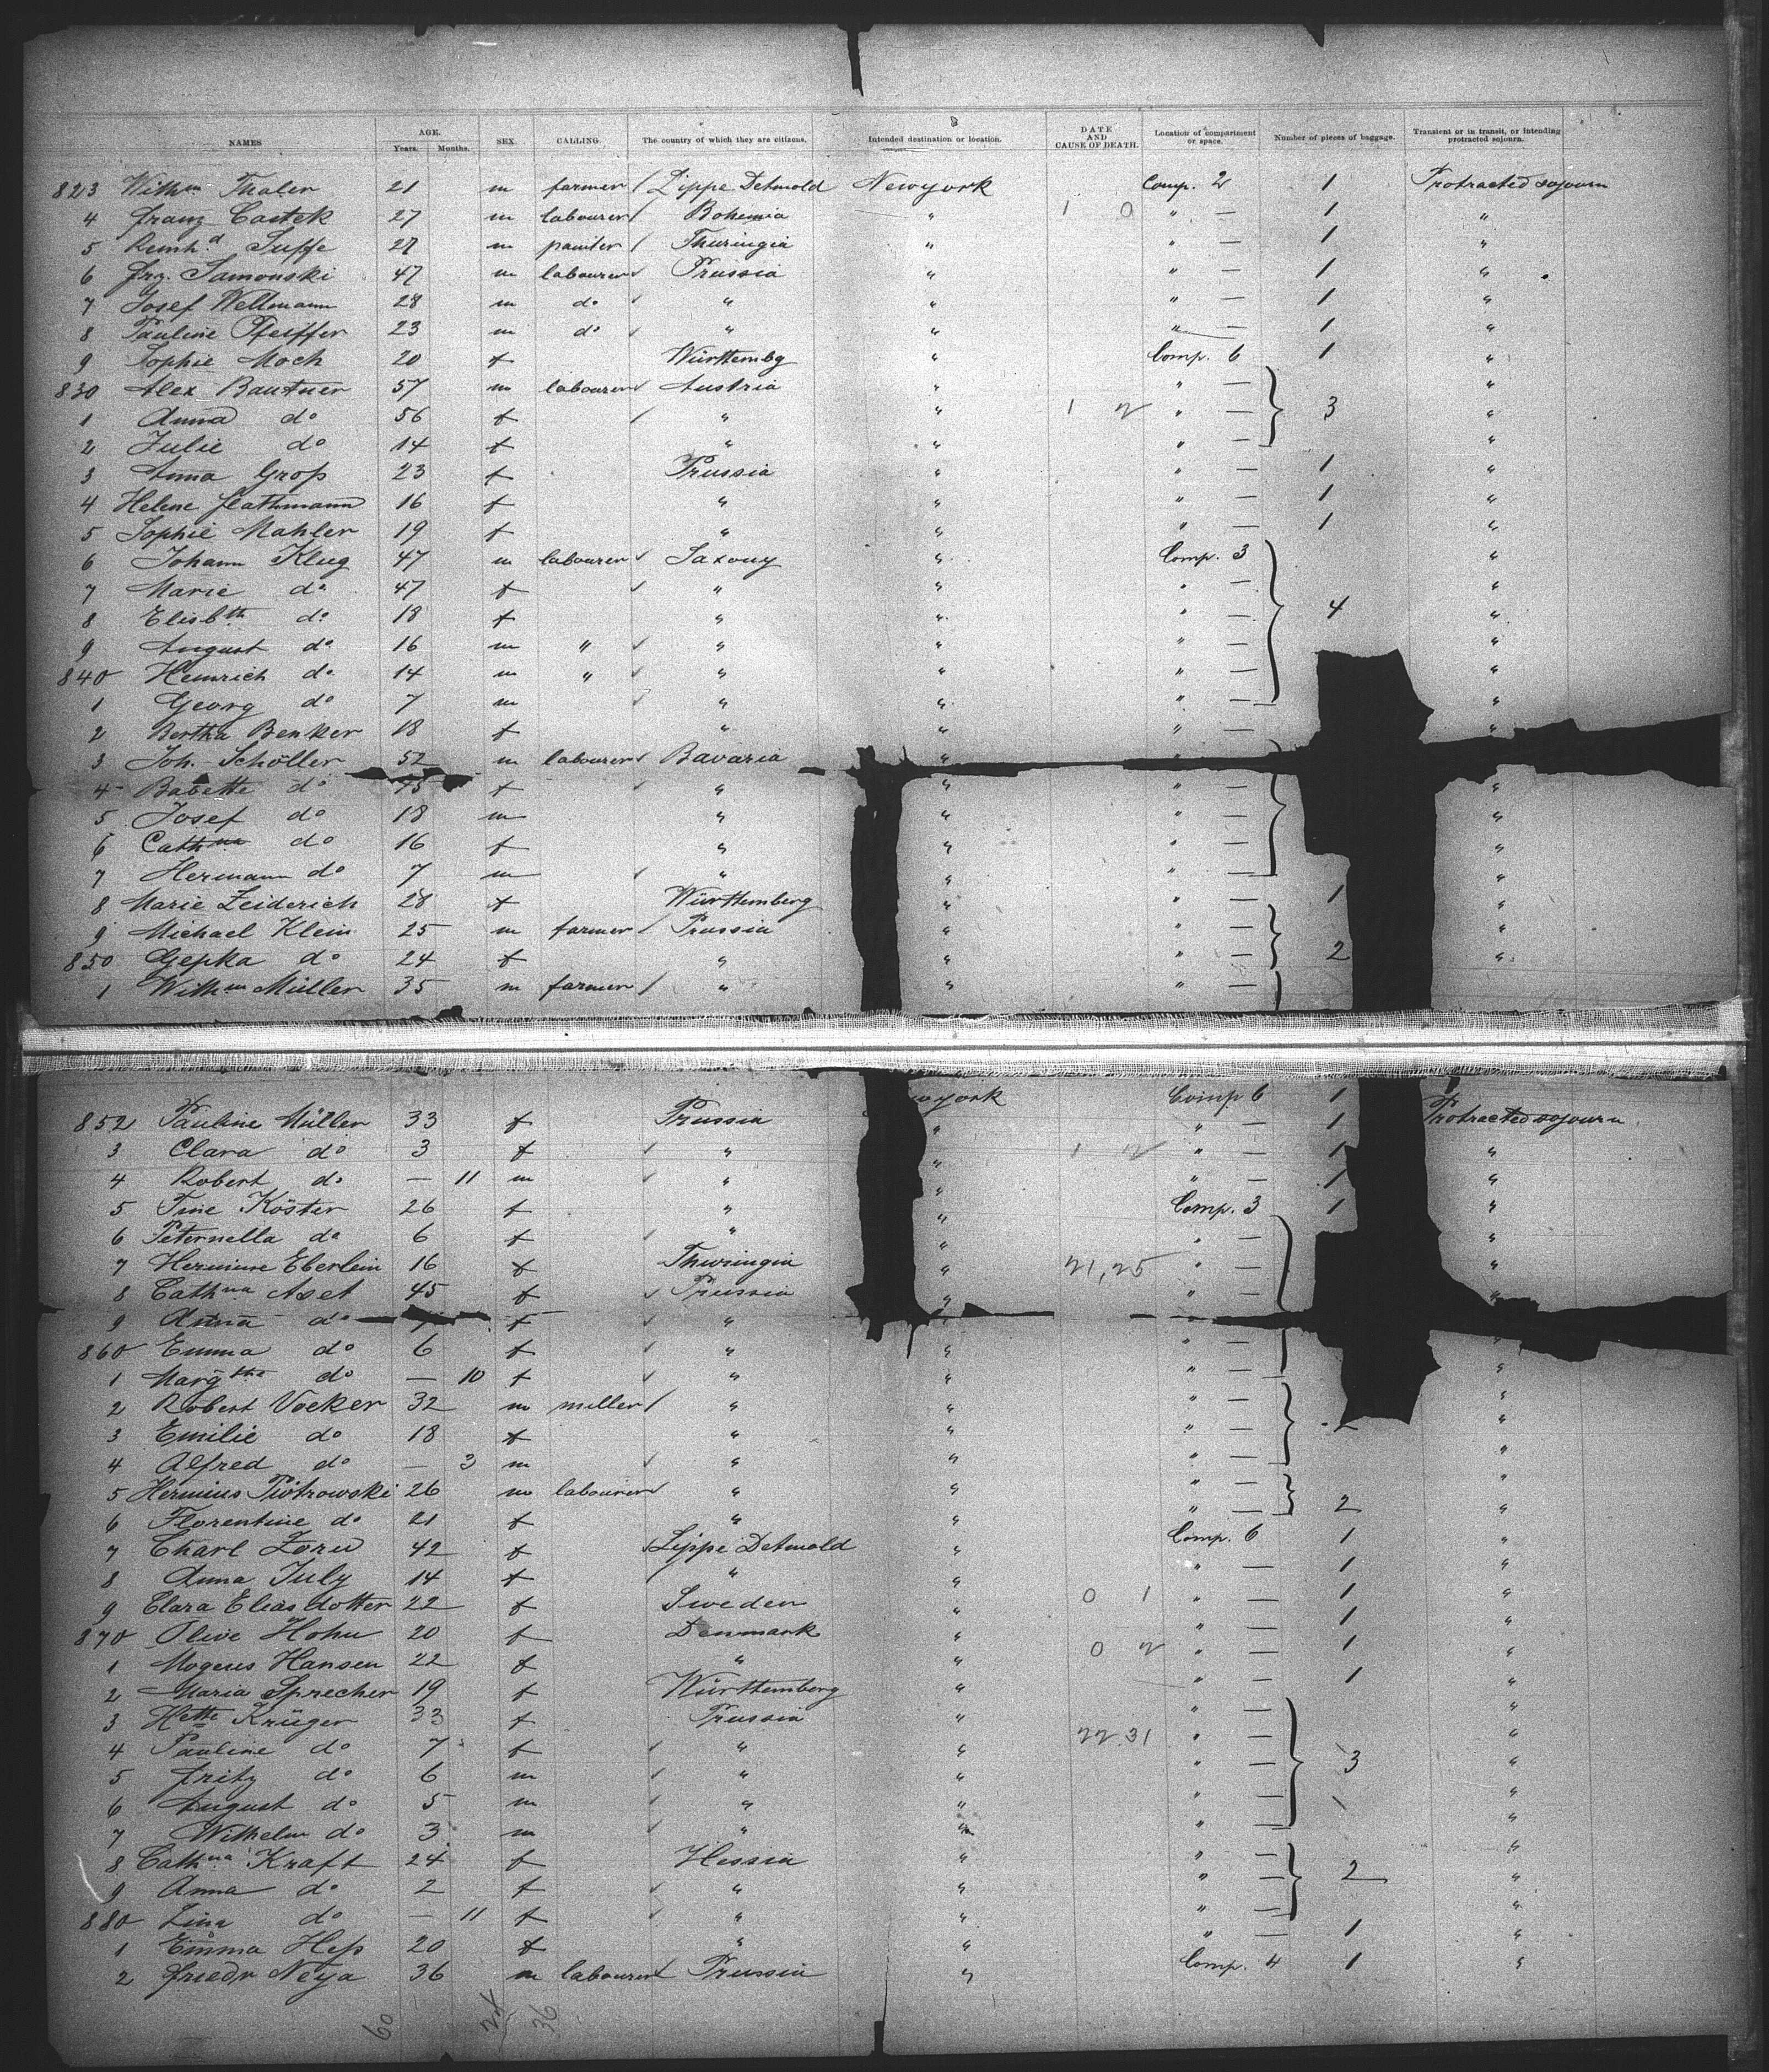 NAMES AGE. Years. Months. SEX. CALLING. The country of which they are citizens. Intended destination or location. DATE AND CAUSE OF DEATH. Location of compartment or space. Number of pieces of baggage. Transient or in transit, or intending protracted sojourn.
823 Wilhm Thaler 21 m farmer / Lippe Detmold Newyork Comp. 2 1 Protracted sojourn
4 Franz Castek 27 m labourer / Bohemia " 1 0 " — 1 "
5 Reinhd Suffe 27 m painter / Thuringia " " — 1 "
6 Frz. Samonski 47 m labourer ✓ Prussia " " — 1 "
7 Josef Wellmann 28 m do ✓ " " " — 1 "
8 Pauline Pfeiffer 23 m do ✓ " " " — 1 "
9 Sophie Moch 20 f Württembg " Comp. 6 1 "
830 Alex Bautner 57 m labourer ✓ Austria " " — "
1 Anna do 56 f ✓ " " 1 2 " — 3 "
2 Julie do 14 f " " " — "
3 Anna Groß 23 f Prussia " " — 1 "
4 Helene Flathmann 16 f " " " — 1 "
5 Sophie Mahler 19 f " " " — 1 "
6 Johann Klug 47 m labourer ✓ Saxony " Comp. 3 "
7 Marie do 47 f ✓ " " " — "
8 Elisbth do 18 f " " " — 4 "
9 August do 16 m " ✓ " " " — "
840 Heinrich do 14 m " ✓ " " " — "
1 Georg do 7 m ✓ " " " — "
2 Bertha Benker 18 f " " " — "
3 Joh. Schöller 52 m labourer ✓ Bavaria " "
4 Babette do 45 f ✓ " " " — "
5 Josef do 18 m " " " — "
6 Cathna do 16 f " " " — "
7 Hermann do 7 m ✓ " " " — "
8 Marie Zeiderich 28 f Württemberg " " — 1 "
9 Michael Klein 25 m farmer / Prussia " " — "
850 Gepka do 24 f " " " — 2 "
1 Wilhm Müller 35 m farmer / " " " —
852 Pauline Müller 33 f Prussia wyork Comp 6 1 Protracted sojourn
3 Clara do 3 f ✓ " " 1 2 " — 1 "
4 Robert do — 11 m ✓ " " " — 1 "
5 Tine Köster 26 f " " Comp. 3 1 "
6 Peternella do 6 f ✓ " " " — "
7 Hermine Eberlein 16 f Thuringia " 21,25 " — "
8 Cathna Axel 45 f ✓ Prussia " " — "
9 Anna do f ✓ " "
860 Emma do 6 f ✓ " " " — "
1 Margthe do — 10 f ✓ " " " — "
2 Robert Vocker 32 m miller / " " " — "
3 Emilie do 18 f " " " — 2 "
4 Alfred do — 3 m ✓ " " " — "
5 Herminus Piotrowski 26 m labourer ✓ " " " — "
6 Florentine do 21 f " " " — 2 "
7 Charl Zorn 42 f ✓ Lippe Detmold " Comp. 6 1 "
8 Anna July 14 f / " " " — 1 "
9 Clara Eliasdotter 22 f Sweden " 0 1 " — 1 "
870 Olive Hohn 20 f Denmark " " — 1 "
1 Mogens Hansen 22 f " " 0 2 " — 1 "
2 Maria Sprecher 19 f Württemberg " " — 1 "
3 Hette Krüger 33 f Prussia " " — "
4 Pauline do 7 f ✓ " " 22 31 " — "
5 Fritz do 6 m ✓ " " " — 3 "
6 August do 5 m ✓ " " " — "
7 Wilhelm do 3 m ✓ " " " — "
8 Cathna Kraft 24 f Hessia " " — "
9 Anna do 2 f ✓ " " " — 2 "
880 Lina do — 11 f ✓ " " " — "
1 Emma Heß 20 f " " " — 1 "
2 Friedr Neya 36 m labourer ✓ Prussia " Comp. 4 1 "
60 24 36